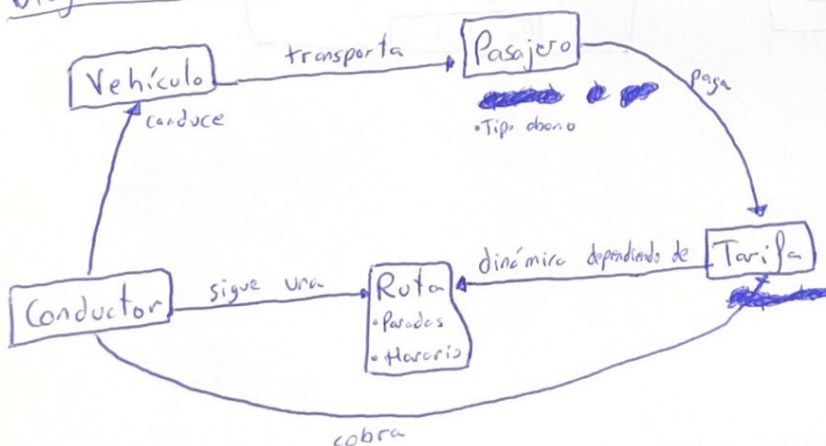 Vehículo
transporta
Pasajero
paga
conduce
•Tipo abono
Conductor
sigue una
Ruta
•Paradas
•Horario
dinámica dependiendo de
Tarifa
cobra